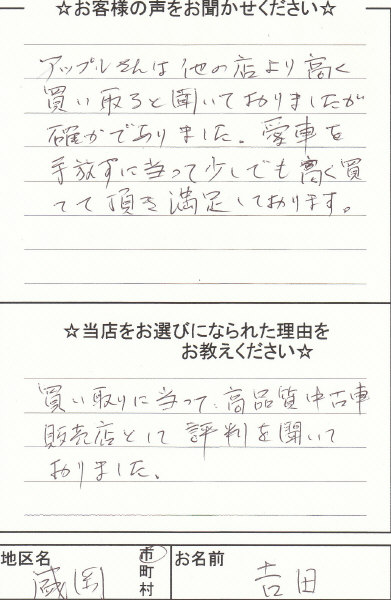 ☆お客様の声をお聞かせください☆
アップルさんは他の店より高く
買い取ると聞いておりましたが
確かでありました。愛車を
手放すに当って少しでも高く買
てて頂き満足しております。
☆当店をお選びになられた理由を
お教えください☆
買い取りに当って、高品質中古車
販売店として評判を聞いて
おりました。
地区名 盛岡 市町村 お名前 吉田